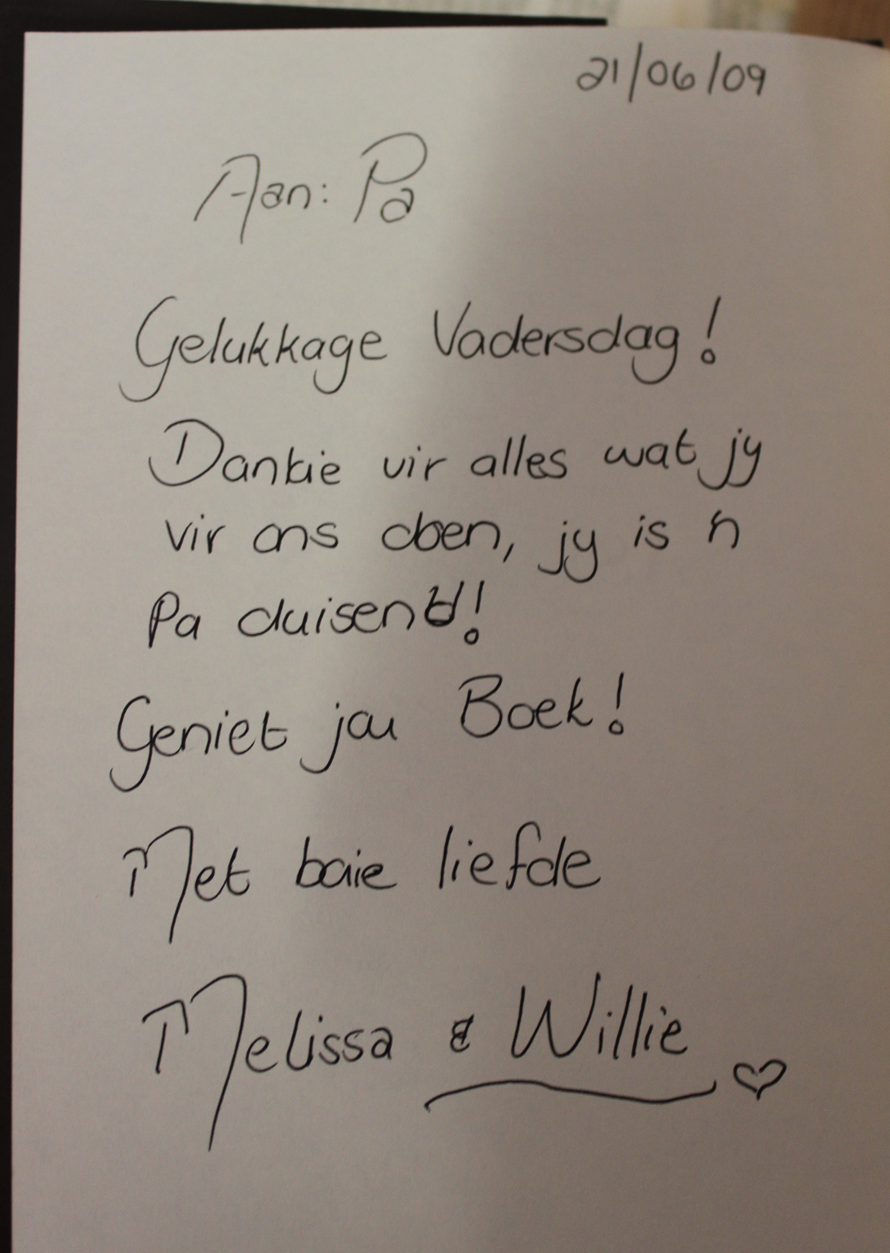 21/06/09
Aan: Pa
Gelukkage Vadersdag!
Dankie vir alles wat jy
vir ons doen, jy is 'n
Pa duisend!
Geniet jou Boek!
Met baie liefde
Melissa & Willie ♡